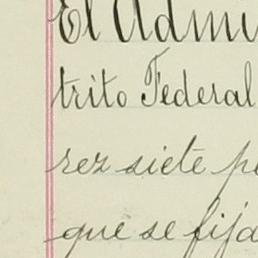 El Admi
trito Federal
rez siete pe
que se fija